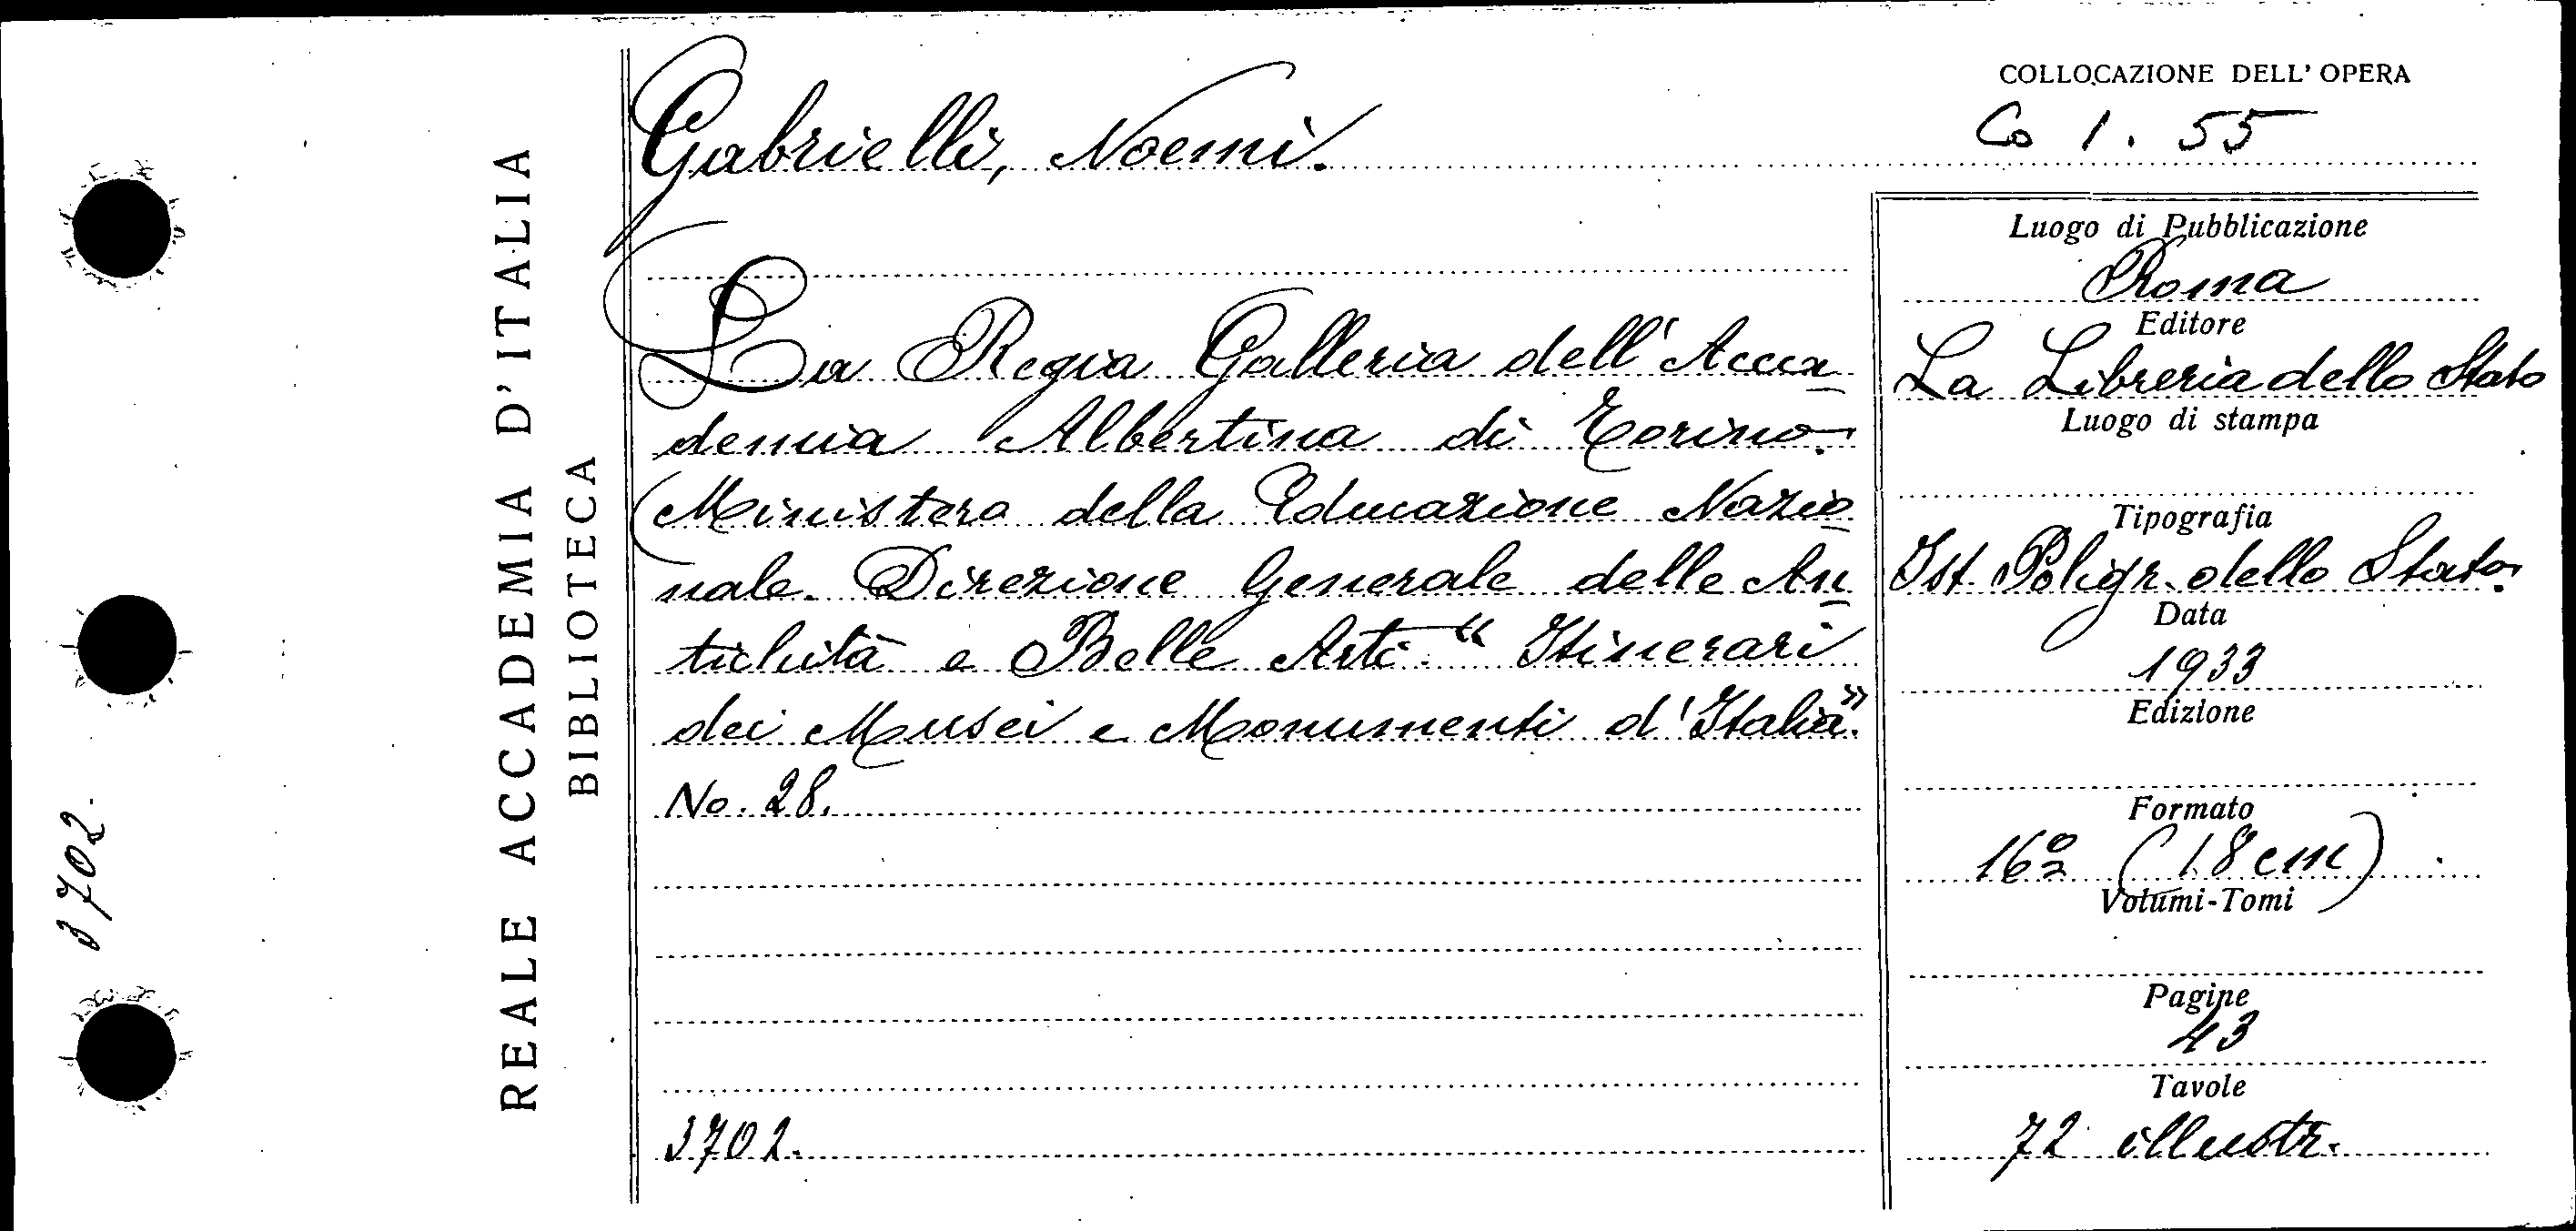 3702.
REALE ACCADEMIA D'ITALIA
BIBLIOTECA
Gabrielli, Noemi.
La Regia Galleria dell'Acca
demia Albertina di Torino.
(Ministero della Educazione Nazio
nale. Direzione Generale delle An
tichità e Belle Arti. "Itinerari
dei Musei e Monumenti d'Italia".
No. 28.
3702.
COLLOCAZIONE DELL'OPERA
Co 1. 55
Luogo di Pubblicazione
Roma
Editore
La Libreria dello Stato
Luogo di stampa
Tipografia
Ist. Poligr. dello Stato.
Data
1933
Edizione
Formato
16º (18 cm)
Volumi-Tomi
Pagine
43
Tavole
72 illustr.